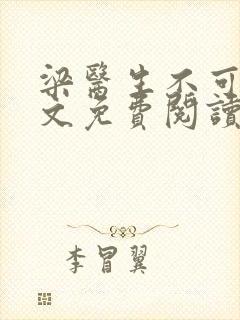 梁醫生不可
文免費閱讀
李冒翼